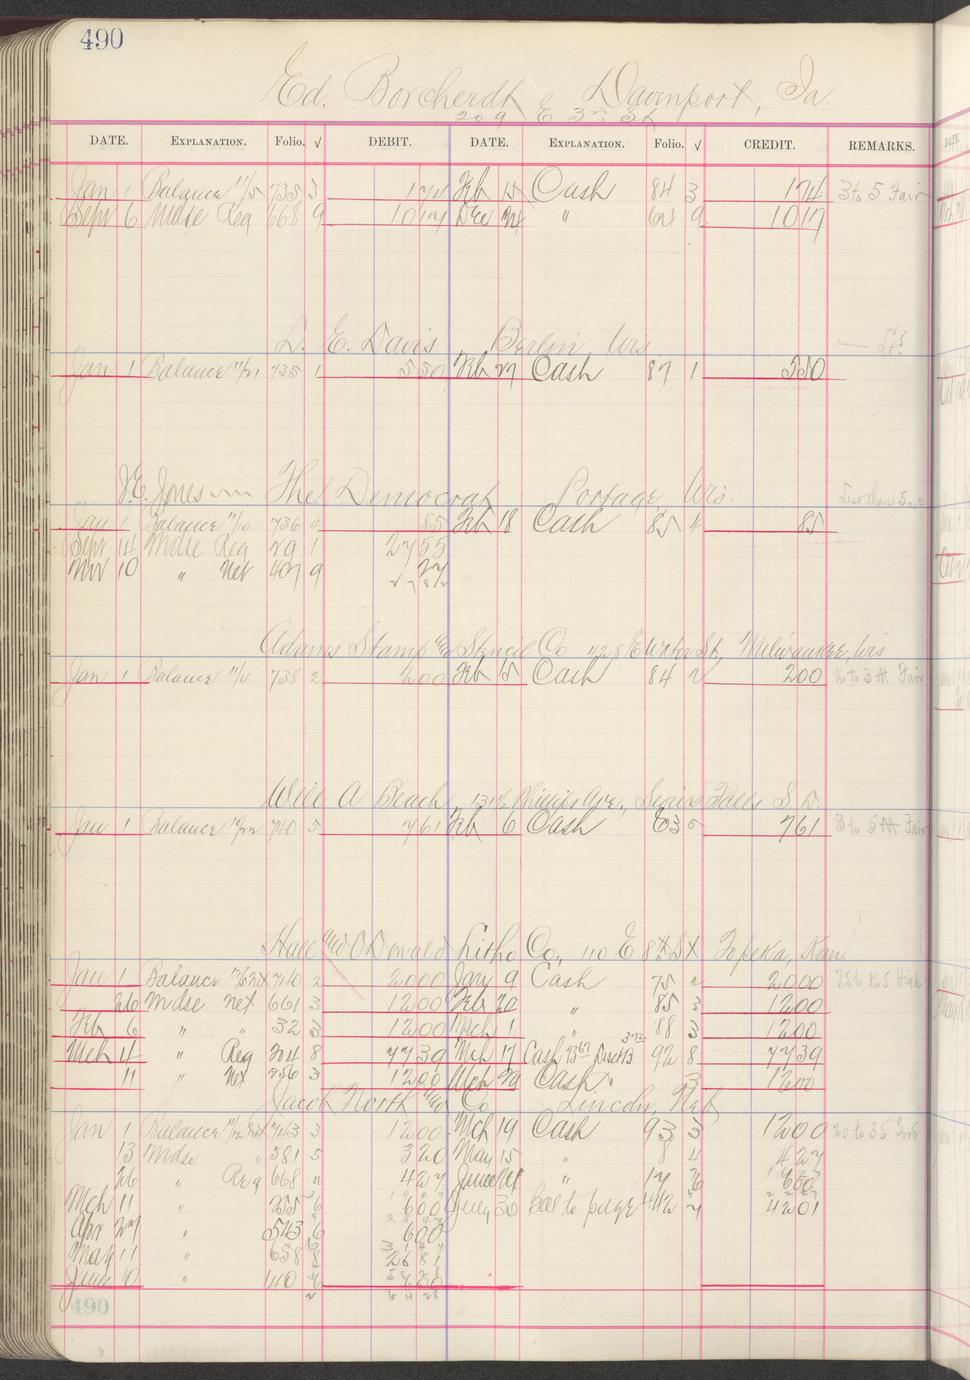 490
Ed. Borcherdt Davenport, Ia.
209 E 3rd St
DATE. EXPLANATION. Folio. √ DEBIT. DATE. EXPLANATION. Folio. √ CREDIT. REMARKS.
Jan 1 Balance 11/5 735 3 174 Feb 15 Cash 84 3 174 3 to 5 Fair
Sept 6 Mdse Reg 668 9 1017 Dec 24 " 64 9 1017
L. E. Davis Berlin, Wis
Jan 1 Balance 11/21 735 1 550 Feb 27 Cash 87 1 550
J.E. Jones The Democrat Portage, Wis. Less than 500
Jan 1 Balance 11/10 736 4 85 Feb 18 Cash 85 4 85
Sept 14 Mdse Reg 29 1 2755
Nov 10 " Net 407 9 27
Adams Stamp and Stencil Co 428 E Water St, Milwaukee, Wis
Jan 1 Balance 11/4 738 2 200 Feb 15 Cash 84 2 200 2 to 3 M Fair
Will A Beach, Phillips Ave., Sioux Falls S. D.
Jan 1 Balance 740 5 761 Feb 6 Cash 83 5 761 3 to 5 M Fair
Hall and O'Donald Litho Co., 110 E 8th St Topeka, Kan.
Jan 1 Balance 740 2 2000 Jany 9 Cash 75 2 2000 75 to 125 High
26 Mdse net 661 3 1200 Feb 20 " 85 3 1200
Feb 6 " " 32 3 1200 Mch 1 " 88 3 1200
Mch 4 " Reg 204 8 7739 Mch 17 Cash 92 8 7739
11 " Net 256 3 1200 Mch 29 Cash 3 1200
Jacob North and Co Lincoln, Neb
Jan 1 Balance 743 3 1200 Mch 19 Cash 93 3 1200 20 to 35 Good
13 Mdse " 581 5 320 May 15 " 8 4 427
26 " Reg 668 4 427 June " 14 6 600
Mch 11 " 255 6 600 July 30 Bal to page 442 4201
Apr 27 " 543 6 600
May 11 " 658 8 2681
June 10 " 40
490